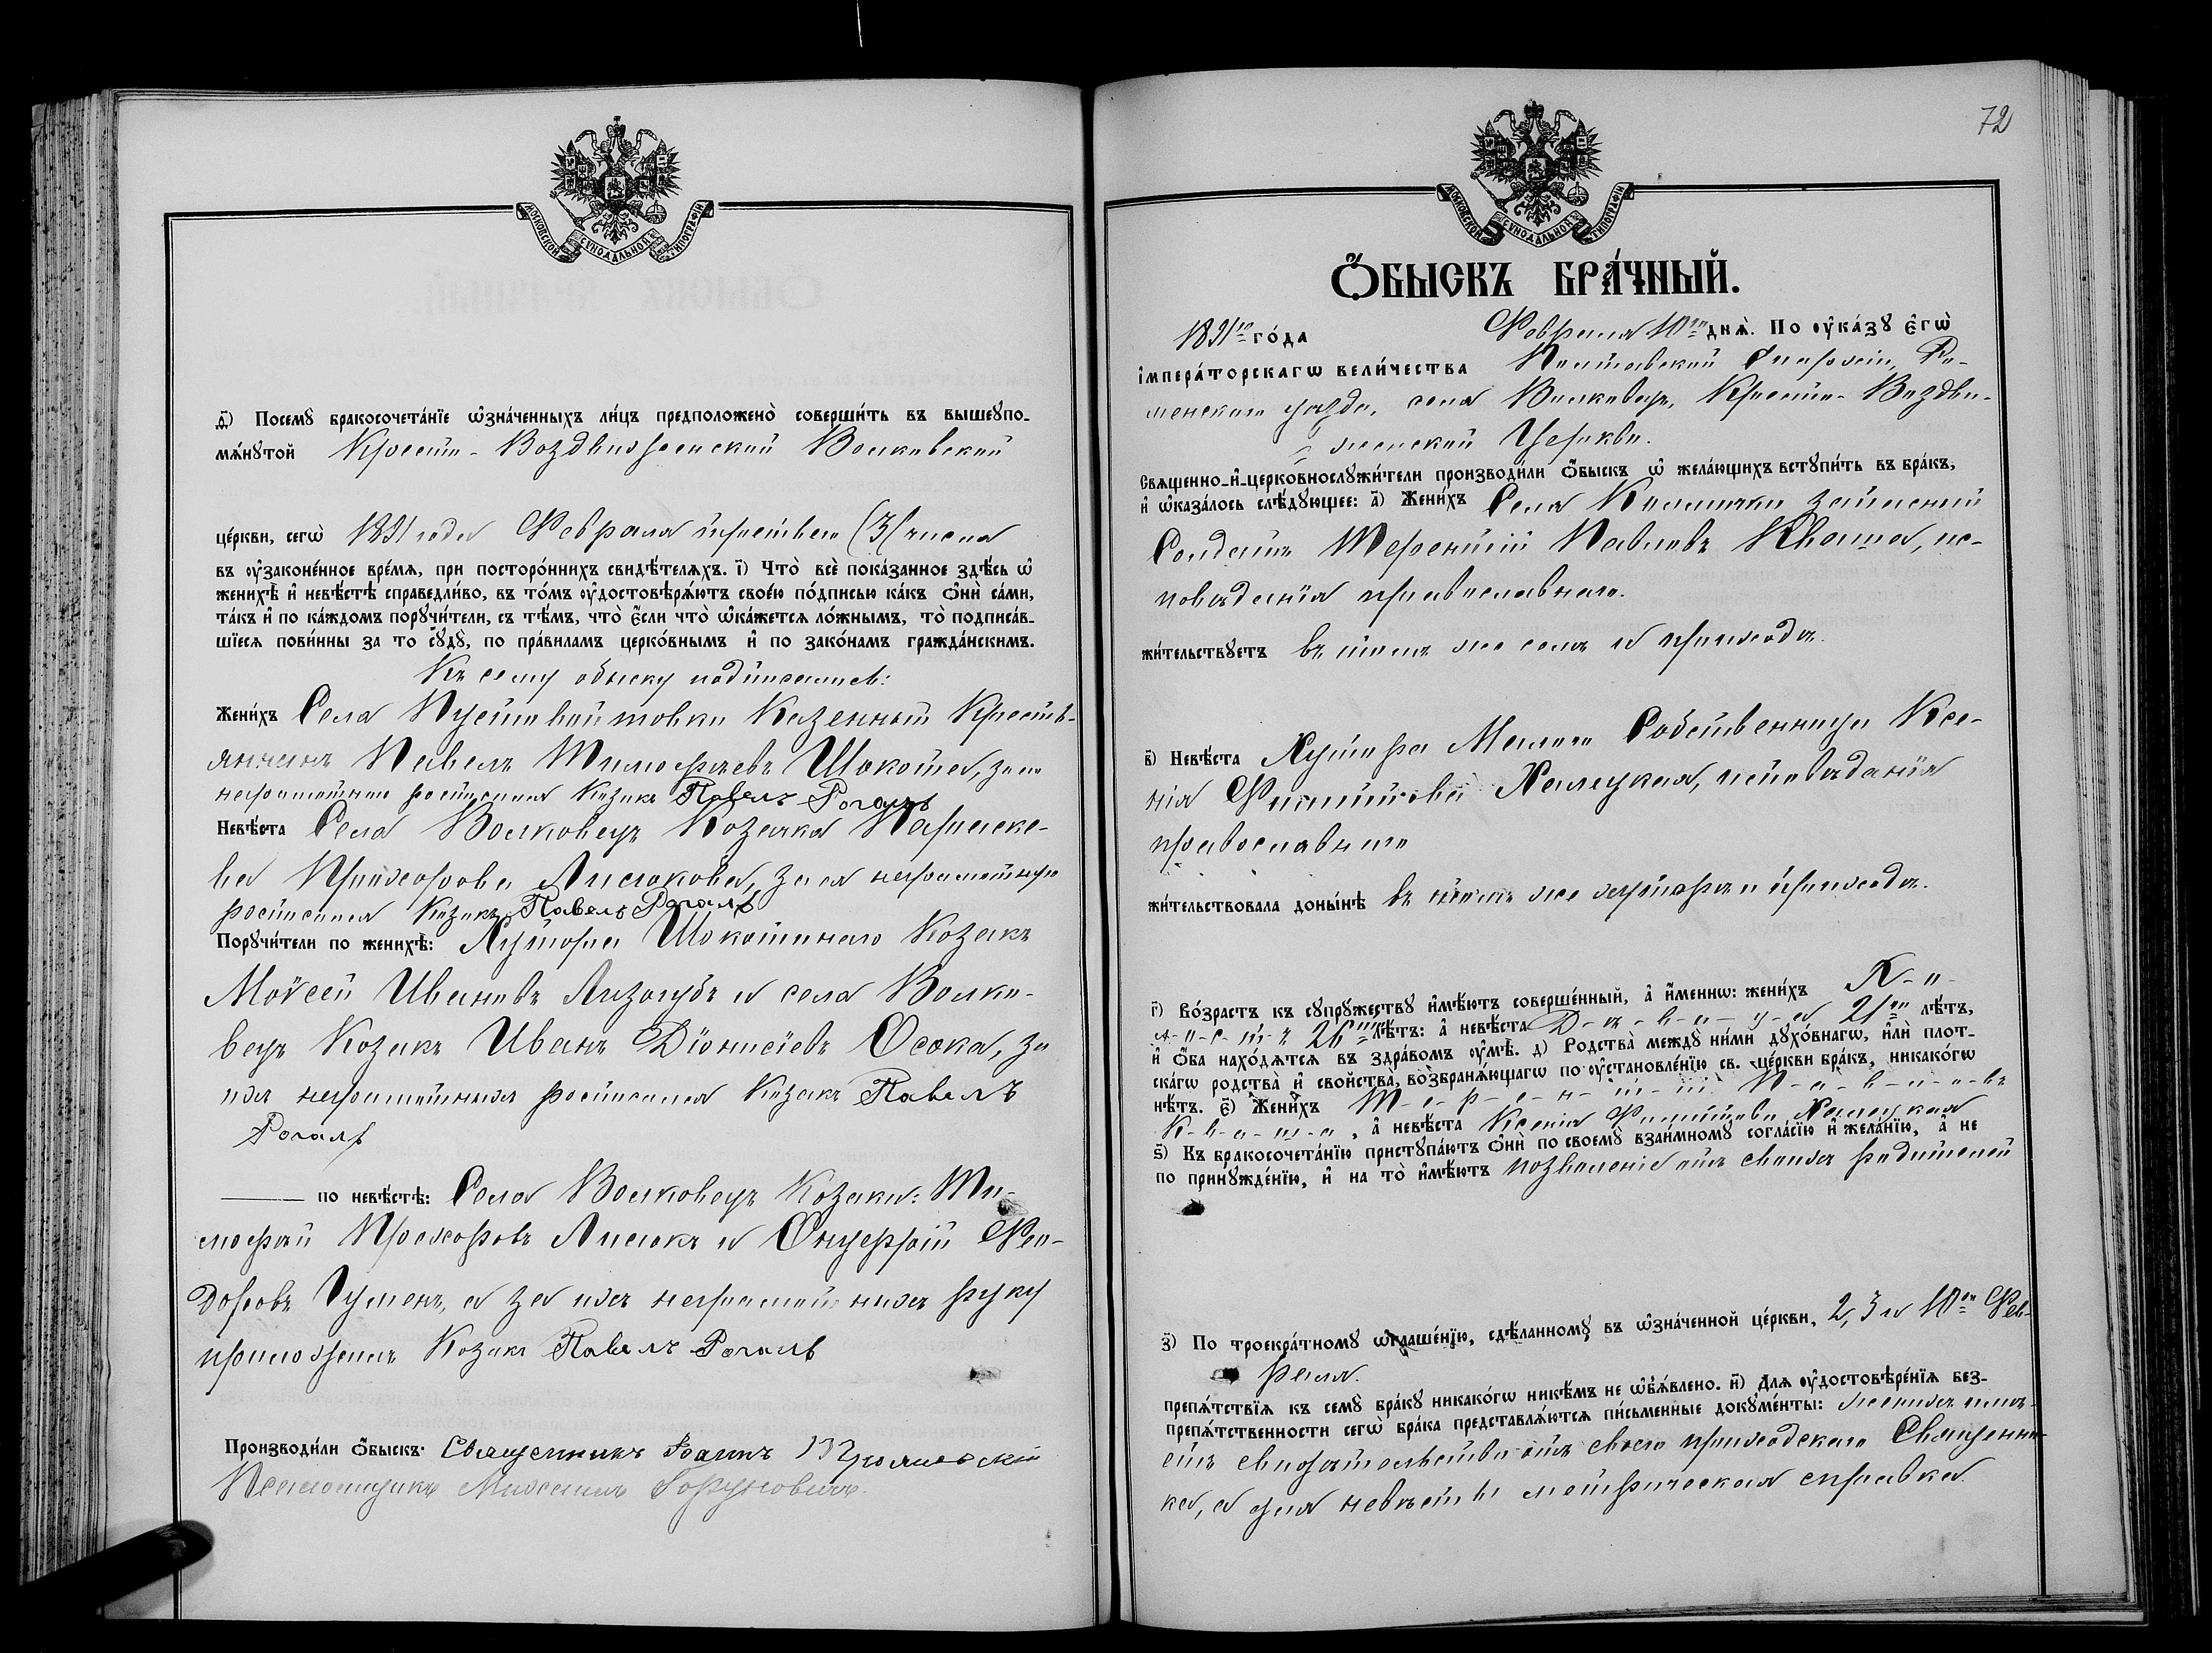 МОСКОВСКОЙ СѴНОДАЛЬНОЙ ТИПОГРАФІИ
д҃) Посемꙋ бракосочета́нїе ѡ҆зна́ченныхъ ли́цъ предположено̀ соверши́ть въ вышеꙋпо-
мѧ́нꙋтой Кресто-Воздвиженской Волковской
це́ркви, сегѡ̀ 1891 года Февраля третьего (3) числа
въ ᲂу҆законе́нное вре́мѧ, при посторо́ннихъ свидѣ́телѧхъ. і҃) Что̀ всѐ пока́занное здѣ́сь ѡ҆
женихѣ̀ и҆ невѣ́стѣ справедли́во, въ то́мъ ᲂу҆достовѣрѧ́ютъ свое́ю по́дписью ка́къ ѻ҆нѝ са́ми,
та́къ и҆ по ка́ждомъ порꙋчи́тели, съ тѣ́мъ, что̀ є҆́сли что̀ ѡ҆ка́жетсѧ ло́жнымъ, то̀ подписа́в-
шїесѧ пови́нны за то сꙋдꙋ̀, по пра́виламъ церко́внымъ и҆ по зако́намъ гражда́нскимъ.
Къ сему обыску подписались:
Жени́хъ Села Пустовойтовки Казенный Кресть-
янинъ Павелъ Тимофѣевъ Шокота, за не
неграмотнаго росписался Козакъ Павелъ Рогаль
Невѣ́ста Села Волковецъ Козачка Параске-
ва Прохорова Лисюкова, за ея неграмотную
росписался Козакъ Павелъ Рогаль
Порꙋчи́тели по женихѣ̀: Хутора Шокотинаго Козакъ
Моѵсей Ивановъ Лизогубъ и села Волко-
вецъ Козакъ Иванъ Діонисіевъ Осока, за
ихъ неграмотныхъ росписался Козакъ Павелъ
Рогаль
по невѣ́стѣ: Села Волковецъ Козаки: Ти-
мофей Прохоровъ Лисюкъ и Онуфрій Фео-
доровъ Гуменъ, а за ихъ неграмотныхъ руку
приложилъ Козакъ Павелъ Рогаль
Производи́ли ѻ҆́быскъ: Священникъ Іоаннъ
Псаломщикъ Михаилъ
72
МОСКОВСКОЙ СѴНОДАЛЬНОЙ ТИПОГРАФІИ
Ѻ҆́БЫСКЪ БРА́ЧНЫЙ.
1891го го́да Февраля 10го днѧ̀. По ᲂу҆ка́зꙋ є҆гѡ̀
і҆мпера́торскагѡ вели́чества Полтавской Епархіи, Ро-
менскаго уѣзда, села Волковецъ, Кресто-Воздви-
женской Церкви.
Свѧщенно-и҆-церковнослꙋжи́тели производи́ли ѻ҆́быскъ ѡ҆ жела́ющихъ встꙋпи́ть въ бра́къ,
и҆ ѡ҆каза́лось слѣ́дꙋющее: а҃) Жени́хъ Села запасный
Солдатъ Терентій Павловъ Кваша, ис-
повѣданія православнаго.
жи́тельствꙋетъ въ томъ же селѣ и приходѣ.
в҃) Невѣ́ста Хутора Малаго Собственница Ксе-
нія Филиппова Халецкая, исповѣданія
православнаго
жи́тельствовала доны́нѣ въ томъ же хуторѣ и приходѣ.
г҃) Во́зрастъ къ сꙋпрꙋ́жествꙋ и҆мѣ́ютъ соверше́нный, а҆ и҆́меннѡ: жени́хъ Х-о-
л-о-с-т-ъ 26ти лѣ́тъ: а҆ невѣ́ста Д-ѣ-в-и-ц-а 21го лѣ́тъ,
и҆ ѻ҆́ба нахо́дѧтсѧ въ здра́вомъ ᲂу҆мѣ̀. д҃) Родства̀ междꙋ ни́ми дꙋхо́внагѡ, и҆лѝ плот-
ска́гѡ родства̀ и҆ сво́йства, возбранѧ́ющагѡ по ᲂу҆становле́нїю св. це́ркви бра́къ, никако́гѡ
нѣ́тъ. є҃) Жени́хъ Т-е-р-е-н-т-і-й П-а-в-л-о-въ
К-в-а-ш-а, а҆ невѣ́ста Ксенія Филиппова Халецкая
ѕ҃) Къ бракосочета́нїю пристꙋпа́ютъ ѻ҆нѝ по своемꙋ̀ взаи́мномꙋ согла́сїю и҆ жела́нїю, а҆ не
по принꙋжде́нїю, и҆ на то̀ и҆мѣ́ютъ позволеніе отъ своихъ родителей
з҃) По троекра́тномꙋ ѡ҆глаше́нїю, сдѣ́ланномꙋ въ ѡ҆зна́ченной це́ркви, 2, 3 и 10го Фев-
раля.
препѧ́тствїѧ къ семꙋ̀ бра́кꙋ никако́гѡ никѣ́мъ не ѡ҆б̾ѧ́влено. и҃) Длѧ ᲂу҆достовѣре́нїѧ без-
препѧ́тственности сегѡ̀ бра́ка представлѧ́ютсѧ пи́сьменные докꙋме́нты: женихъ имѣ-
етъ свидѣтельство отъ своего приходскаго Священни-
ка, а для невѣсты метрическая справка.